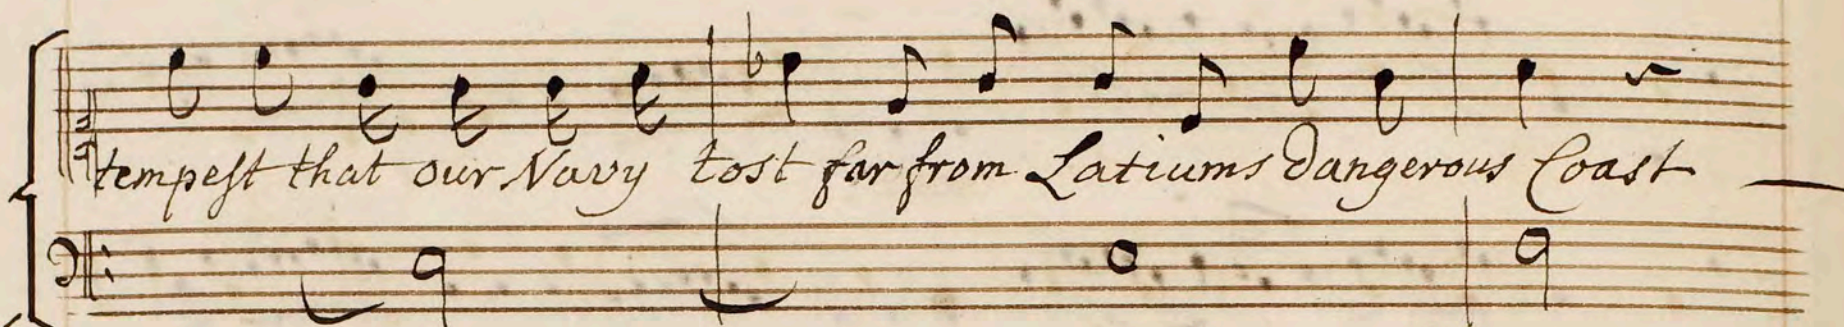 tempeſt that our Navy tost far from Latiums dangerous Coast